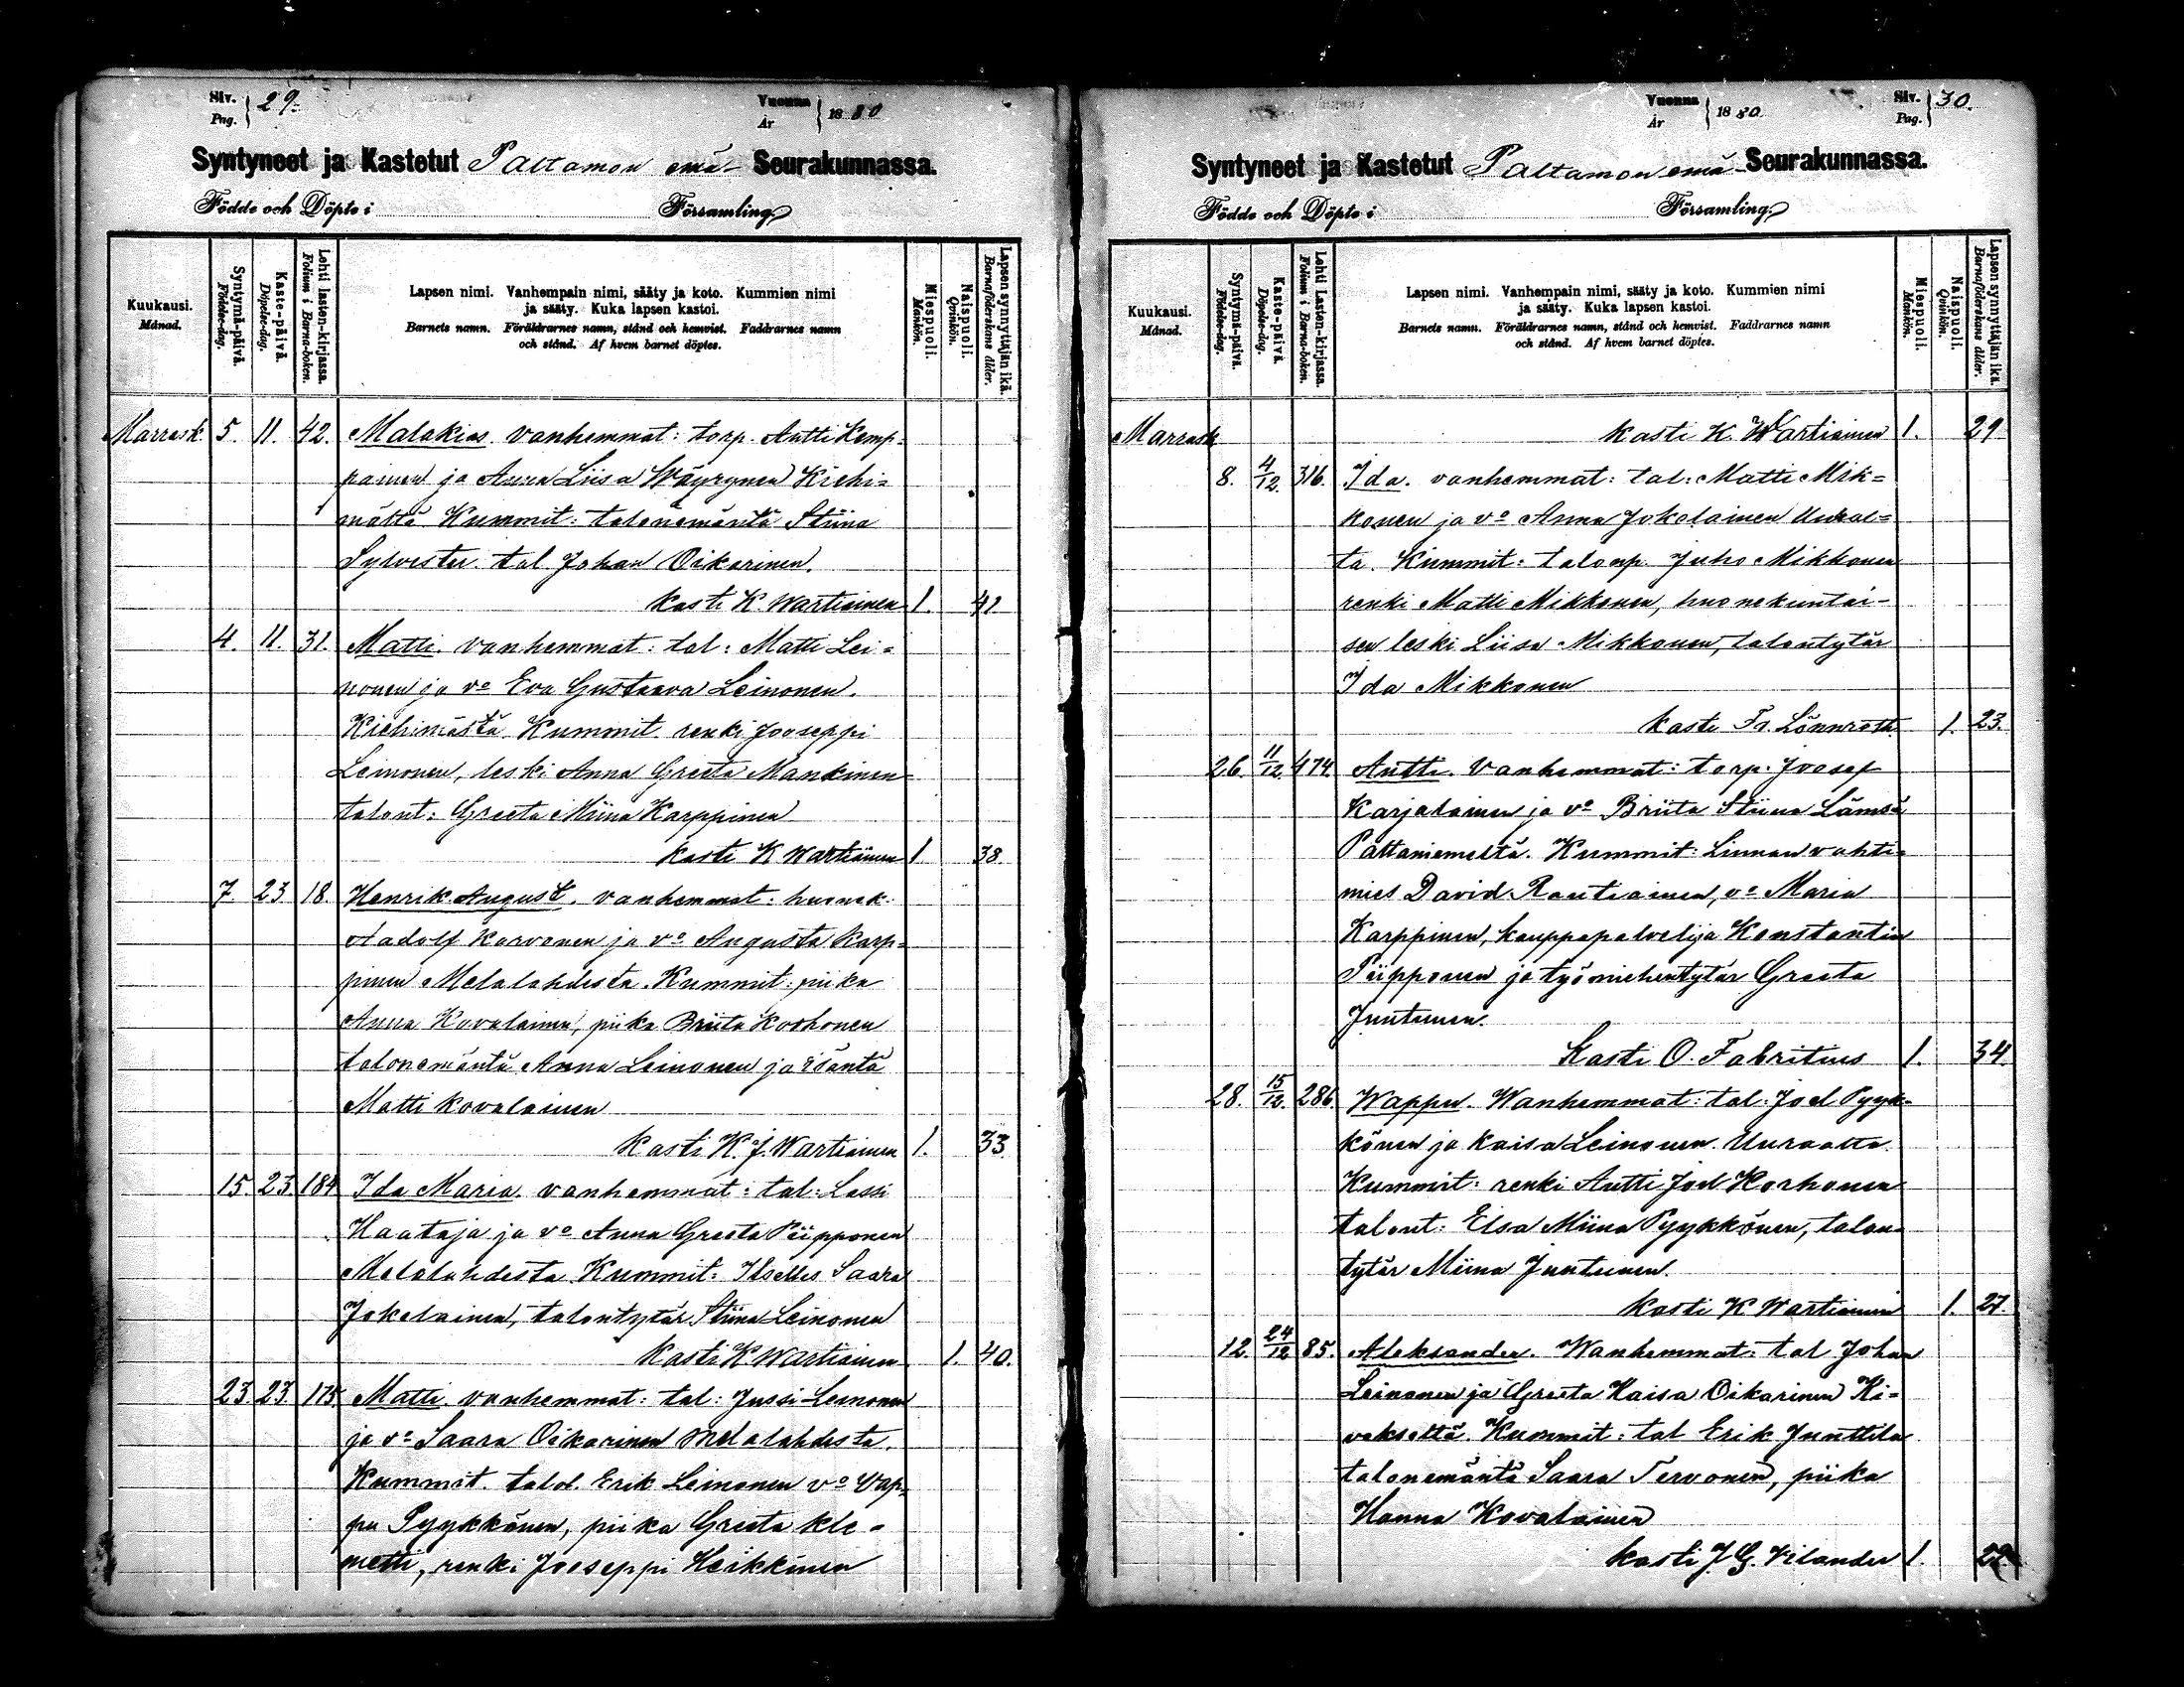 Siv. Pag. 29.
Vuonna År 1880
Syntyneet ja Kastetut Paltamon emä- Seurakunnassa.
Födde och Döpte i Församling.
Kuukausi. Månad.
Syntymä-päivä. Födelse-dag.
Kaste-päivä. Döpelse-dag.
Lehti lasten-kirjassa. Folium i Barna-boken.
Lapsen nimi. Vanhempain nimi, sääty ja koto. Kummien nimi
ja sääty. Kuka lapsen kastoi.
Barnets namn. Föräldrarnes namn, stånd och hemvist. Faddrarnes namn
och stånd. Af hvem barnet döptes.
Miespuoli. Mankön.
Naispuoli. Qvinkön.
Lapsen synnyttäjän ikä. Barnaföderskans ålder.
Marrask. 5. 11. 42. Malakias. vanhemmat: torp. Antti Kemp-
painen ja Anna Liisa Wäyrynen Kiehi-
mästä Kummit: talonemäntä Stiina
Sylvester. tal. Johan Oikarinen.
kasti K. Wartiainen 1. 41
4. 11. 31. Matti. vanhemmat: tal: Matti Lei-
nonen ja vo Eva Gustaava Leinonen.
Kiehimästä Kummit. renki Jooseppi
Leinonen, leski Anna Greeta Mankinen
talont: Greeta Miina Karppinen
kasti K Wartiainen 1 38
7. 23. 18. Henrik August. vanhemmat: huonek.
Aadolf Karvonen ja vo Augusta Karp-
pinen Melalahdesta. Kummit: piika
Anna Kovalainen, piika Briita Korhonen
talonemäntä Anna Leinonen ja isäntä
Matti Kovalainen
Kasti K. J. Wartiainen 1. 33.
15. 23. 184 Ida Maria. vanhemmat: tal: Lassi
Haataja ja vo Anna Greeta Piipponen
Melalahdesta Kummit: Itselles Saara
Jokelainen, talontytär Stiina Leinonen
Kasti K Wartiainen 1. 40.
23. 23. 175 Matti. vanhemmat: tal: Jussi Leinonen
ja vo Saara Oikarinen Melalahdesta.
Kummit. talol. Erik Leinonen vo Vap-
pu Pyykkönen, piika Greeta Kle-
metti, renki Jooseppi Heikkinen
Vuonna År 1880
Siv. Pag. 30.
Syntyneet ja Kastetut Paltamon emä- Seurakunnassa.
Födde och Döpte i Församling.
Kuukausi. Månad.
Syntymä-päivä. Födelse-dag.
Kaste-päivä. Döpelse-dag.
Lehti Lasten-kirjassa. Folium i Barna-boken.
Lapsen nimi. Vanhempain nimi, sääty ja koto. Kummien nimi
ja sääty. Kuka lapsen kastoi.
Barnets namn. Föräldrarnes namn, stånd och hemvist. Faddrarnes namn
och stånd. Af hvem barnet döptes.
Miespuoli. Mankön.
Naispuoli. Qvinkön.
Lapsen synnyttäjän ikä. Barnaföderskans ålder.
Marrask kasti K. Wartiainen 1. 29
8. 4/12. 316. Ida. vanhemmat: tal: Matti Mik=
konen ja vo Anna Jokelainen Uural=
ta. Kummit: talonp. Juho Mikkonen
renki Matti Mikkonen, huonekuntai-
sen leski Liisa Mikkonen, talontytär
Ida Mikkonen
kasti Fr. Lönnrot. 1. 23.
26. 11/12 474. Antti. Vanhemmat: torp. Joosef
Karjalainen ja vo Briita Stiina Lämsä
Paltaniemeltä. Kummit: Linnan vahti-
mies David Rautiainen, vo Maria
Karppinen, kauppapalvelija Konstantin
Piipponen ja työmiehentytär Greeta
Juntunen.
Kasti O. Fabritius 1. 34.
28. 15/12. 286. Wappu. Wanhemmat: tal: Joel Pyyk-
könen ja Kaisa Leinonen. Uuraalta
Kummit: renki Antti Joel Korhonen
talont: Elsa Miina Pyykkönen, talon-
tytär Miina Juntunen.
kasti K Wartiainen 1. 27.
12. 24/12 85. Aleksander. Wanhemmat: tal Johan
Leinonen ja Greeta Kaisa Oikarinen Ki-
vekseltä. Kummit: tal Erik Junttila
talonemäntä Saara Tervonen, piika
Hanna Kovalainen
kasti J. G. Vilander 1. 29